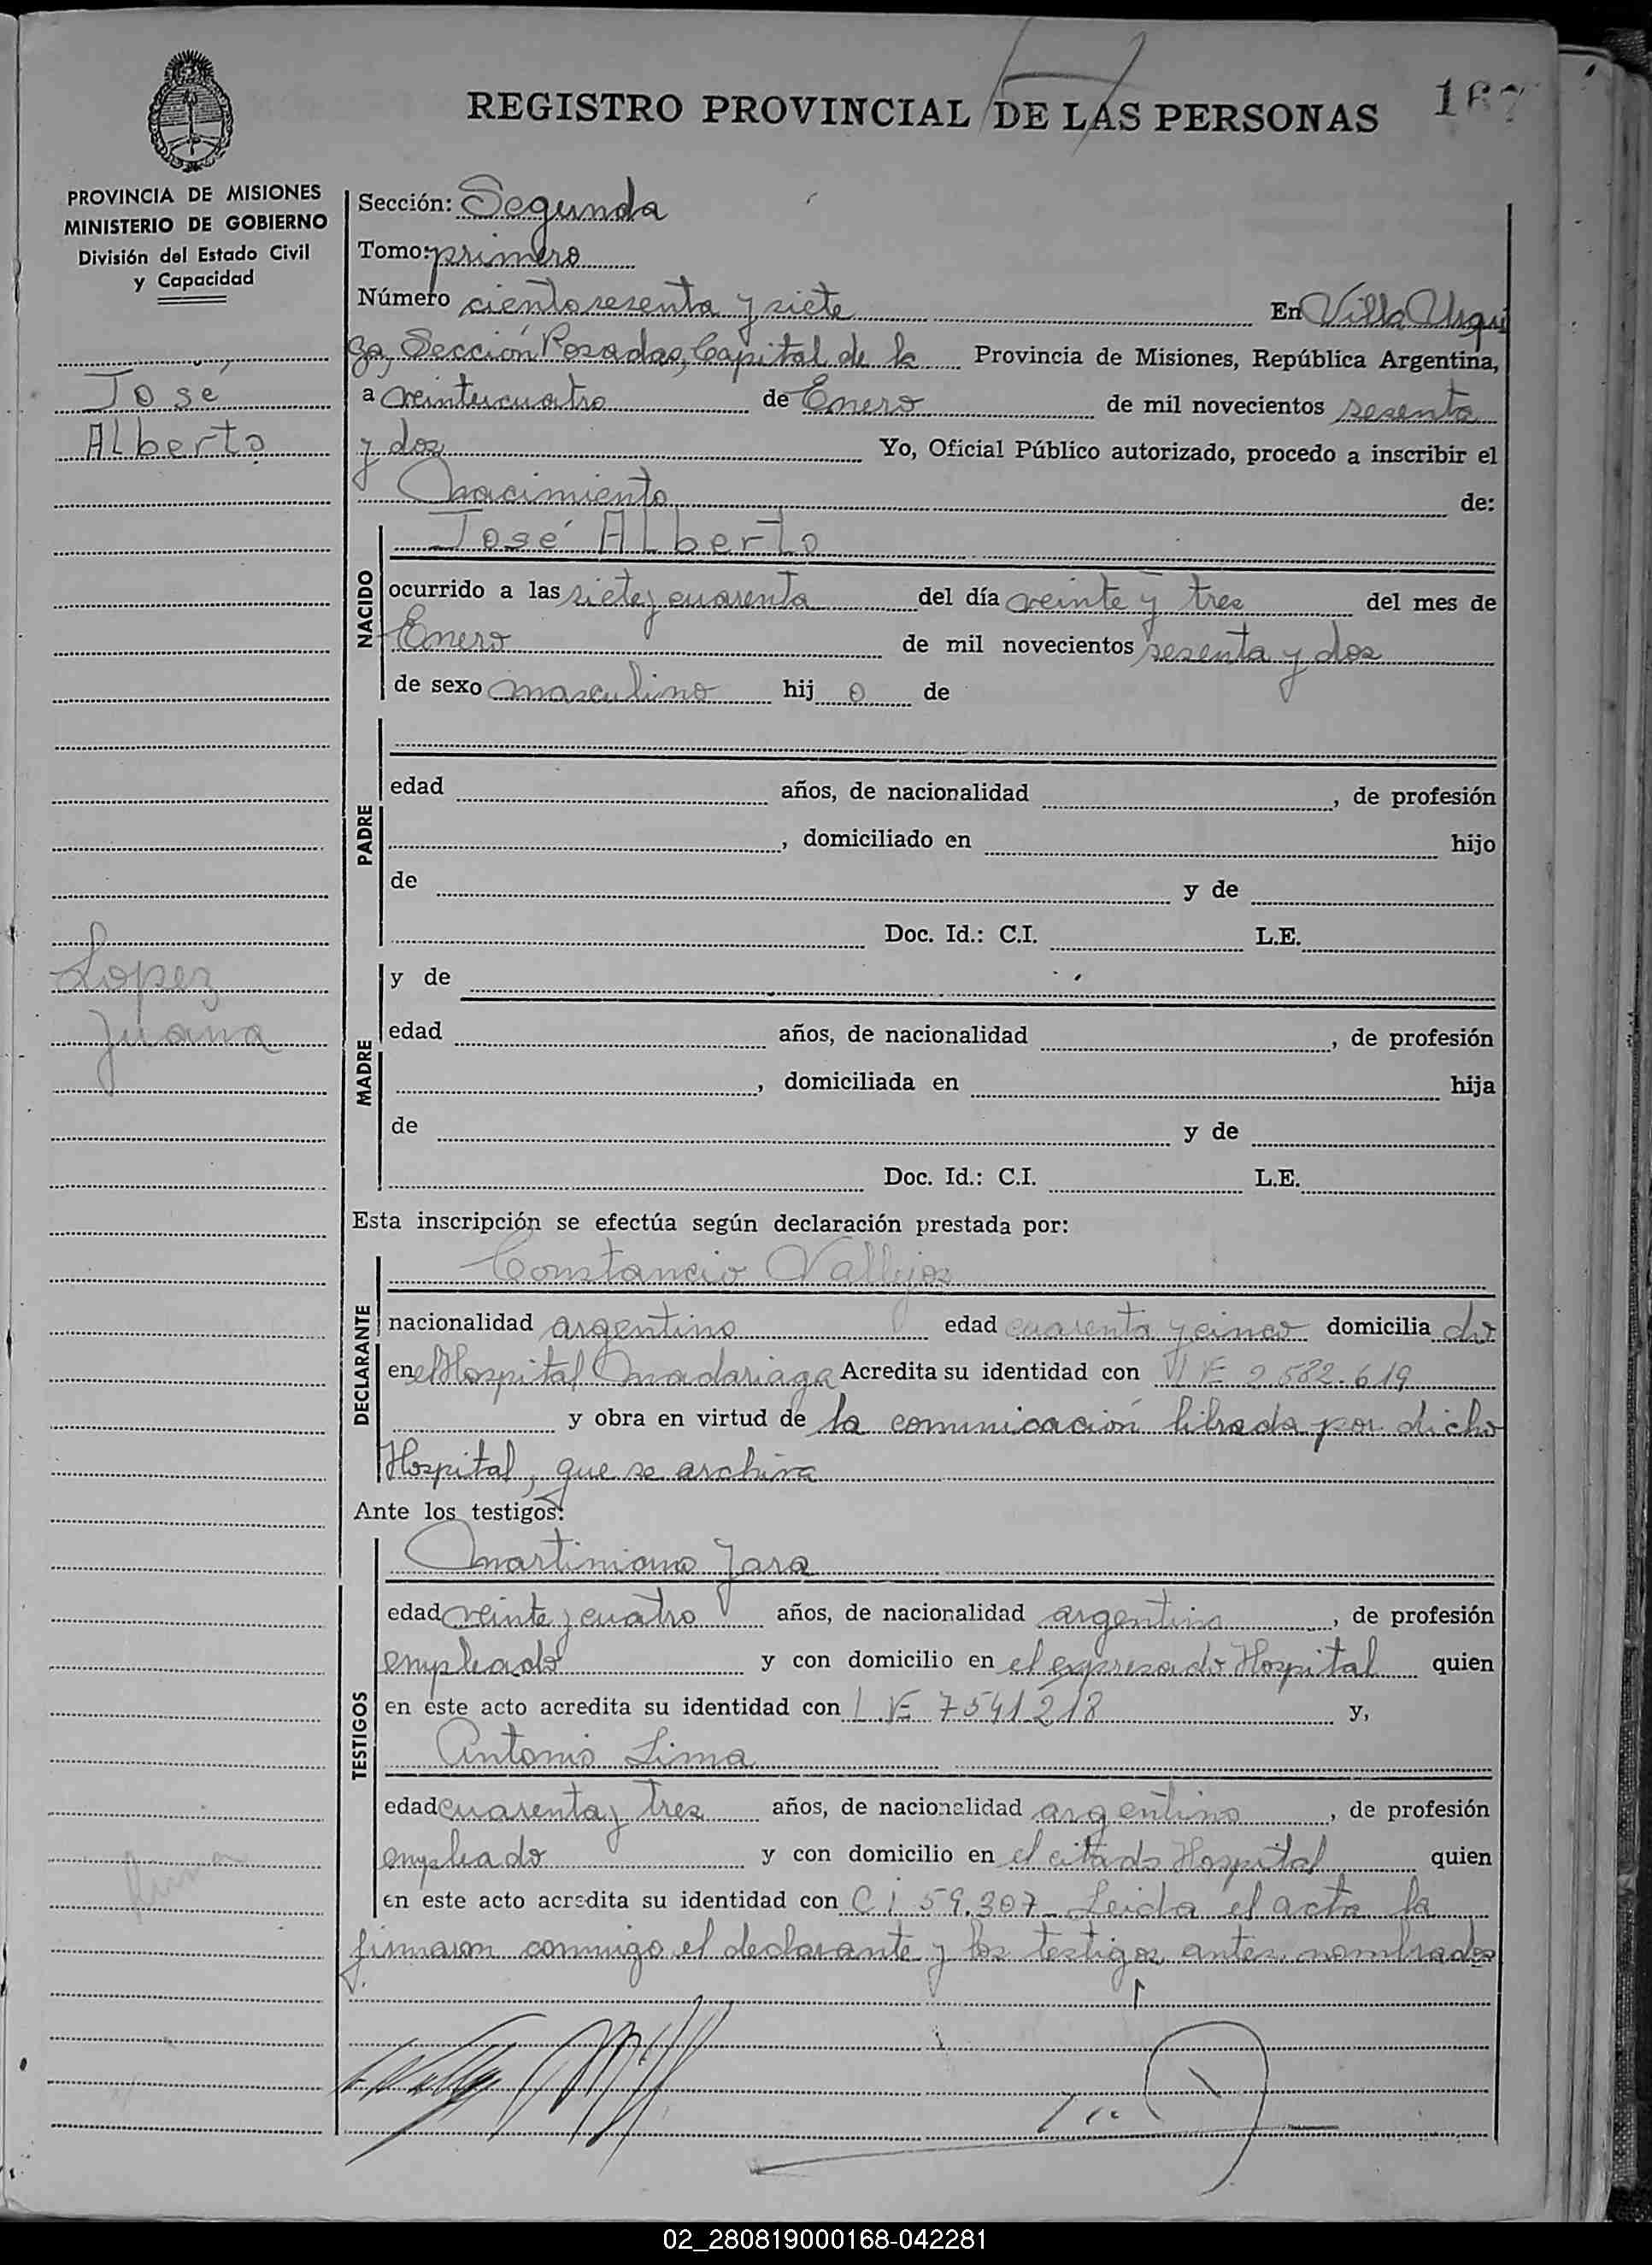 REGISTRO PROVINCIAL DE LAS PERSONAS
167
PROVINCIA DE MISIONES
MINISTERIO DE GOBIERNO
División del Estado Civil
y Capacidad
José
Alberto
Lopez
Juana
Sección: Segunda
Tomo: primero
Número ciento sesenta y siete En Villa Urqui
za, Sección Posadas, Capital de la Provincia de Misiones, República Argentina,
a veinticuatro de Enero de mil novecientos sesenta
y dos Yo, Oficial Público autorizado, procedo a inscribir el
Nacimiento de:
NACIDO
José Alberto
ocurrido a las siete y cuarenta del día veinte y tres del mes de
Enero de mil novecientos sesenta y dos
de sexo masculino hij o de
PADRE
edad años, de nacionalidad , de profesión
, domiciliado en hijo
de y de
Doc. Id.: C.I. L.E.
MADRE
y de
edad años, de nacionalidad , de profesión
, domiciliada en hija
de y de
Doc. Id.: C.I. L.E.
Esta inscripción se efectúa según declaración prestada por:
DECLARANTE
Constancio Vallejos
nacionalidad argentino edad cuarenta y cinco domicilia do
en el Hospital Madariaga Acredita su identidad con 2.582.619
y obra en virtud de la comunicación librada por dicho
Hospital, que se archiva
Ante los testigos:
TESTIGOS
Martiniano Jara
edad veinte y cuatro años, de nacionalidad argentina, de profesión
empleado y con domicilio en el expresado Hospital quien
en este acto acredita su identidad con L.E. 7541218 y,
Antonio Lima
edad cuarenta y tres años, de nacionalidad argentino, de profesión
empleado y con domicilio en el citado Hospital quien
en este acto acredita su identidad con C I 59.307 - Leida el acta la
firmaron conmigo el declarante y los testigos antes nombrados
02_280819000168-042281